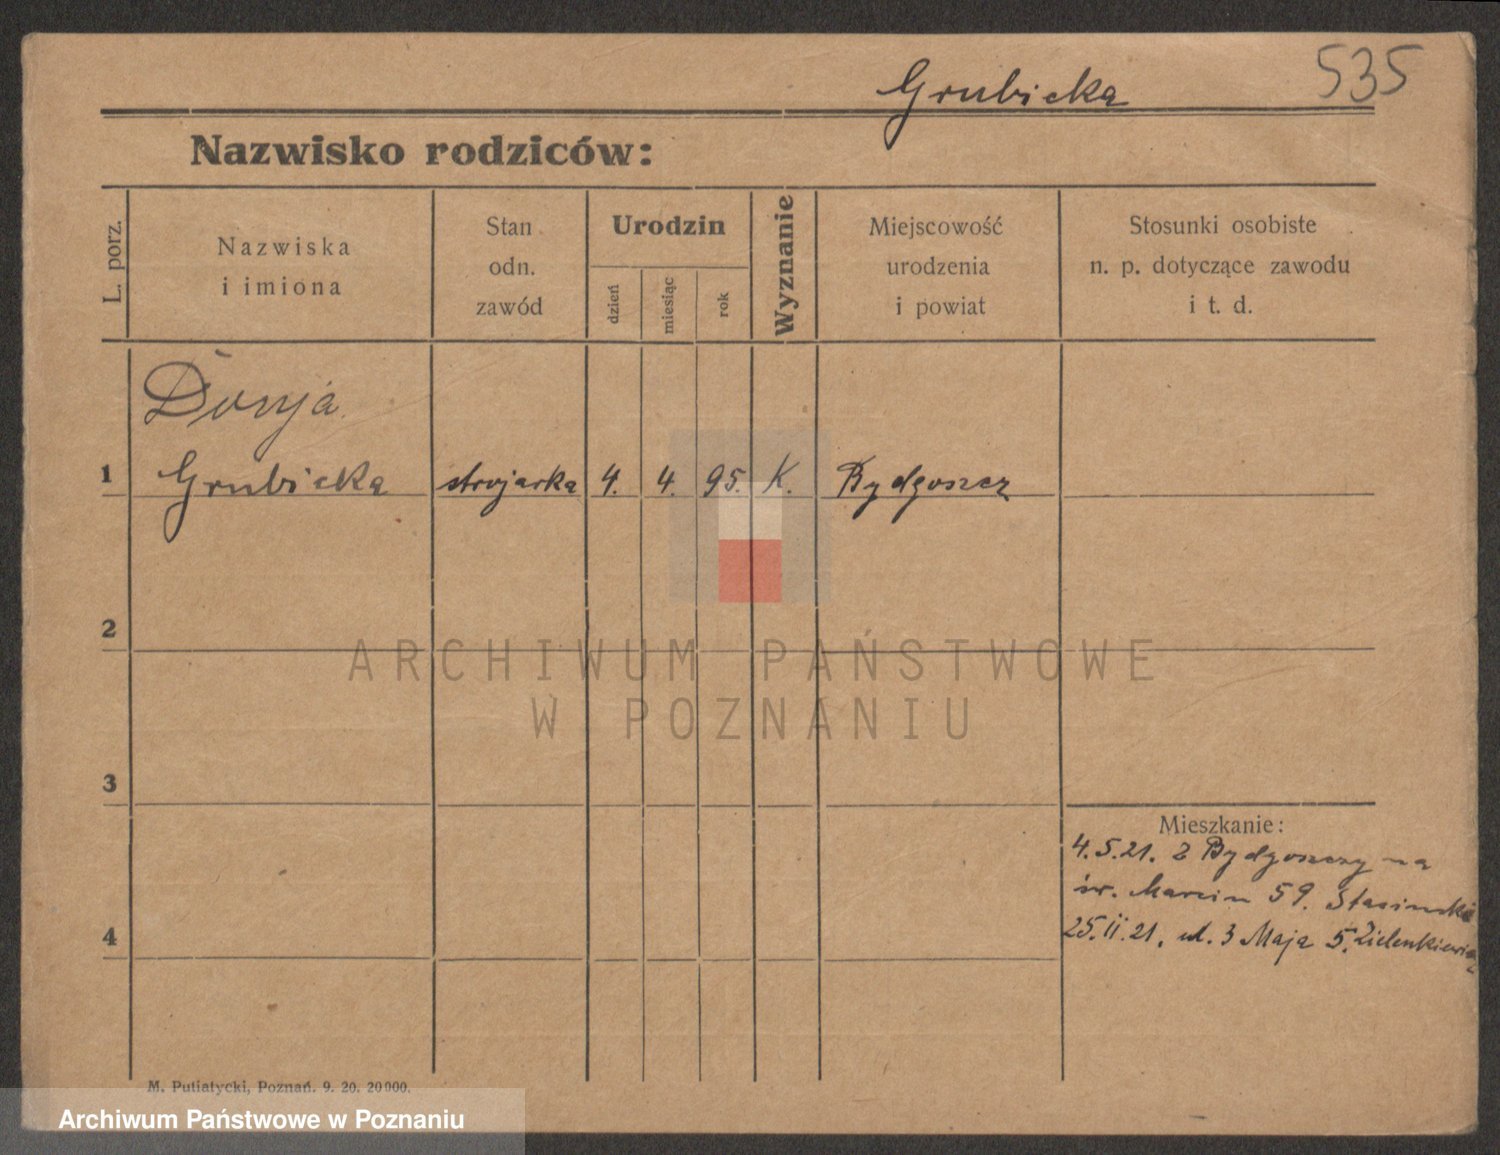 Grubicka 535
Nazwisko rodziców:
L. porz.
Nazwiska
i imiona
Stan
odn.
zawód
Urodzin
dzień
miesiąc
rok
Wyznanie
Miejscowość
urodzenia
i powiat
Stosunki osobiste
n. p. dotyczące zawodu
i t. d.
1 Grubicka strojarka 4. 4. 95. K. Bydgoszcz
2
ARCHIWUM PAŃSTWOWE
W POZNANIU
3
Mieszkanie:
4.5.21. z Bydgoszczy na
św. Marcin 59. Stasinski
4
25.II.21. ul. 3 Maja 5. Zielenkiewicz
M. Putiatycki, Poznań. 9. 20. 20000.
Archiwum Państwowe w Poznaniu